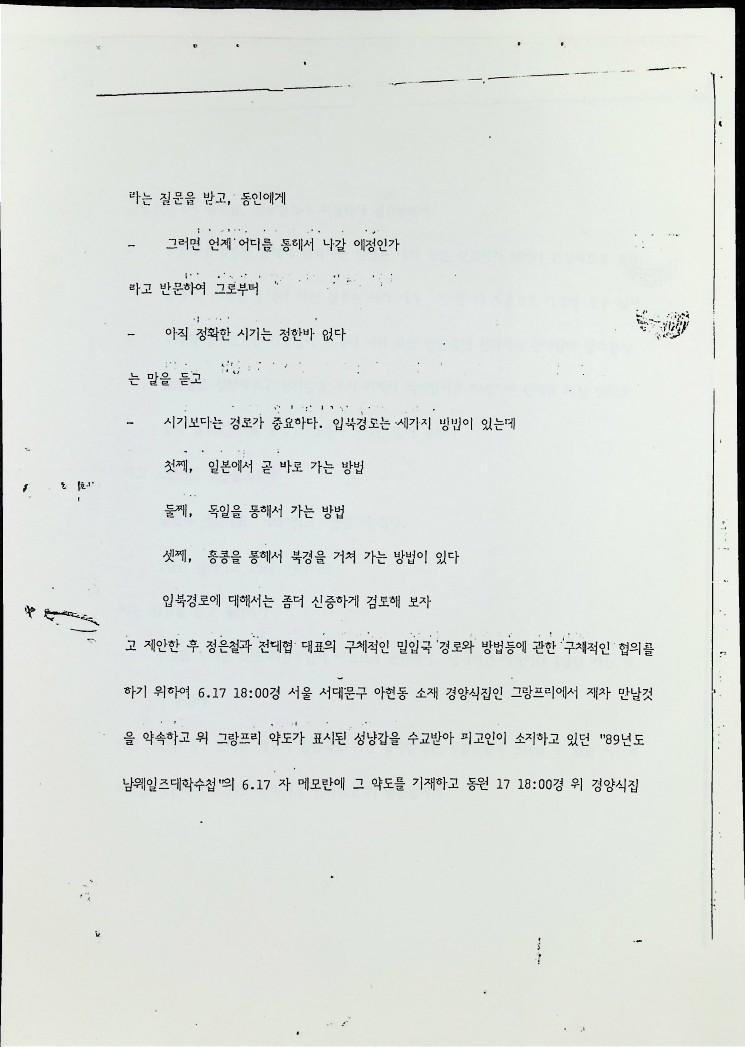 라는 질문을 받고, 동인에게
- 그러면 언제 어디를 통해서 나갈 예정인가
라고 반문하여 그로부터
- 아직 정확한 시기는 정한바 없다
는 말을 듣고
- 시기보다는 경로가 중요하다. 입북경로는 세가지 방법이 있는데
첫째, 일본에서 곧 바로 가는 방법
둘째, 독일을 통해서 가는 방법
셋째, 홍콩을 통해서 북경을 거쳐 가는 방법이 있다
입북경로에 대해서는 좀더 신중하게 검토해 보자
고 제안한 후 정은철과 전대협 대표의 구체적인 밀입국 경로와 방법등에 관한 구체적인 협의를
하기 위하여 6.17 18:00경 서울 서대문구 아현동 소재 경양식집인 그랑프리에서 재차 만날것
을 약속하고 위 그랑프리 약도가 표시된 성냥갑을 수교받아 피고인이 소지하고 있던 "89년도
남웨일즈대학수첩"의 6.17 자 메모란에 그 약도를 기재하고 동월 17 18:00경 위 경양식집